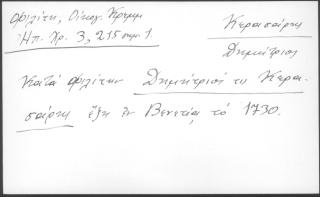 Φιλίτη, Οἰκογ. Κρεμμ
Ἠπ. Χρ. 3, 215 σημ. 1.
Κερασάρης
Δημήτριος
Κατά Φιλίτην Δημήτριός τις Κερα-
σάρης ἔζη ἐν Βενετίᾳ τό 1730.